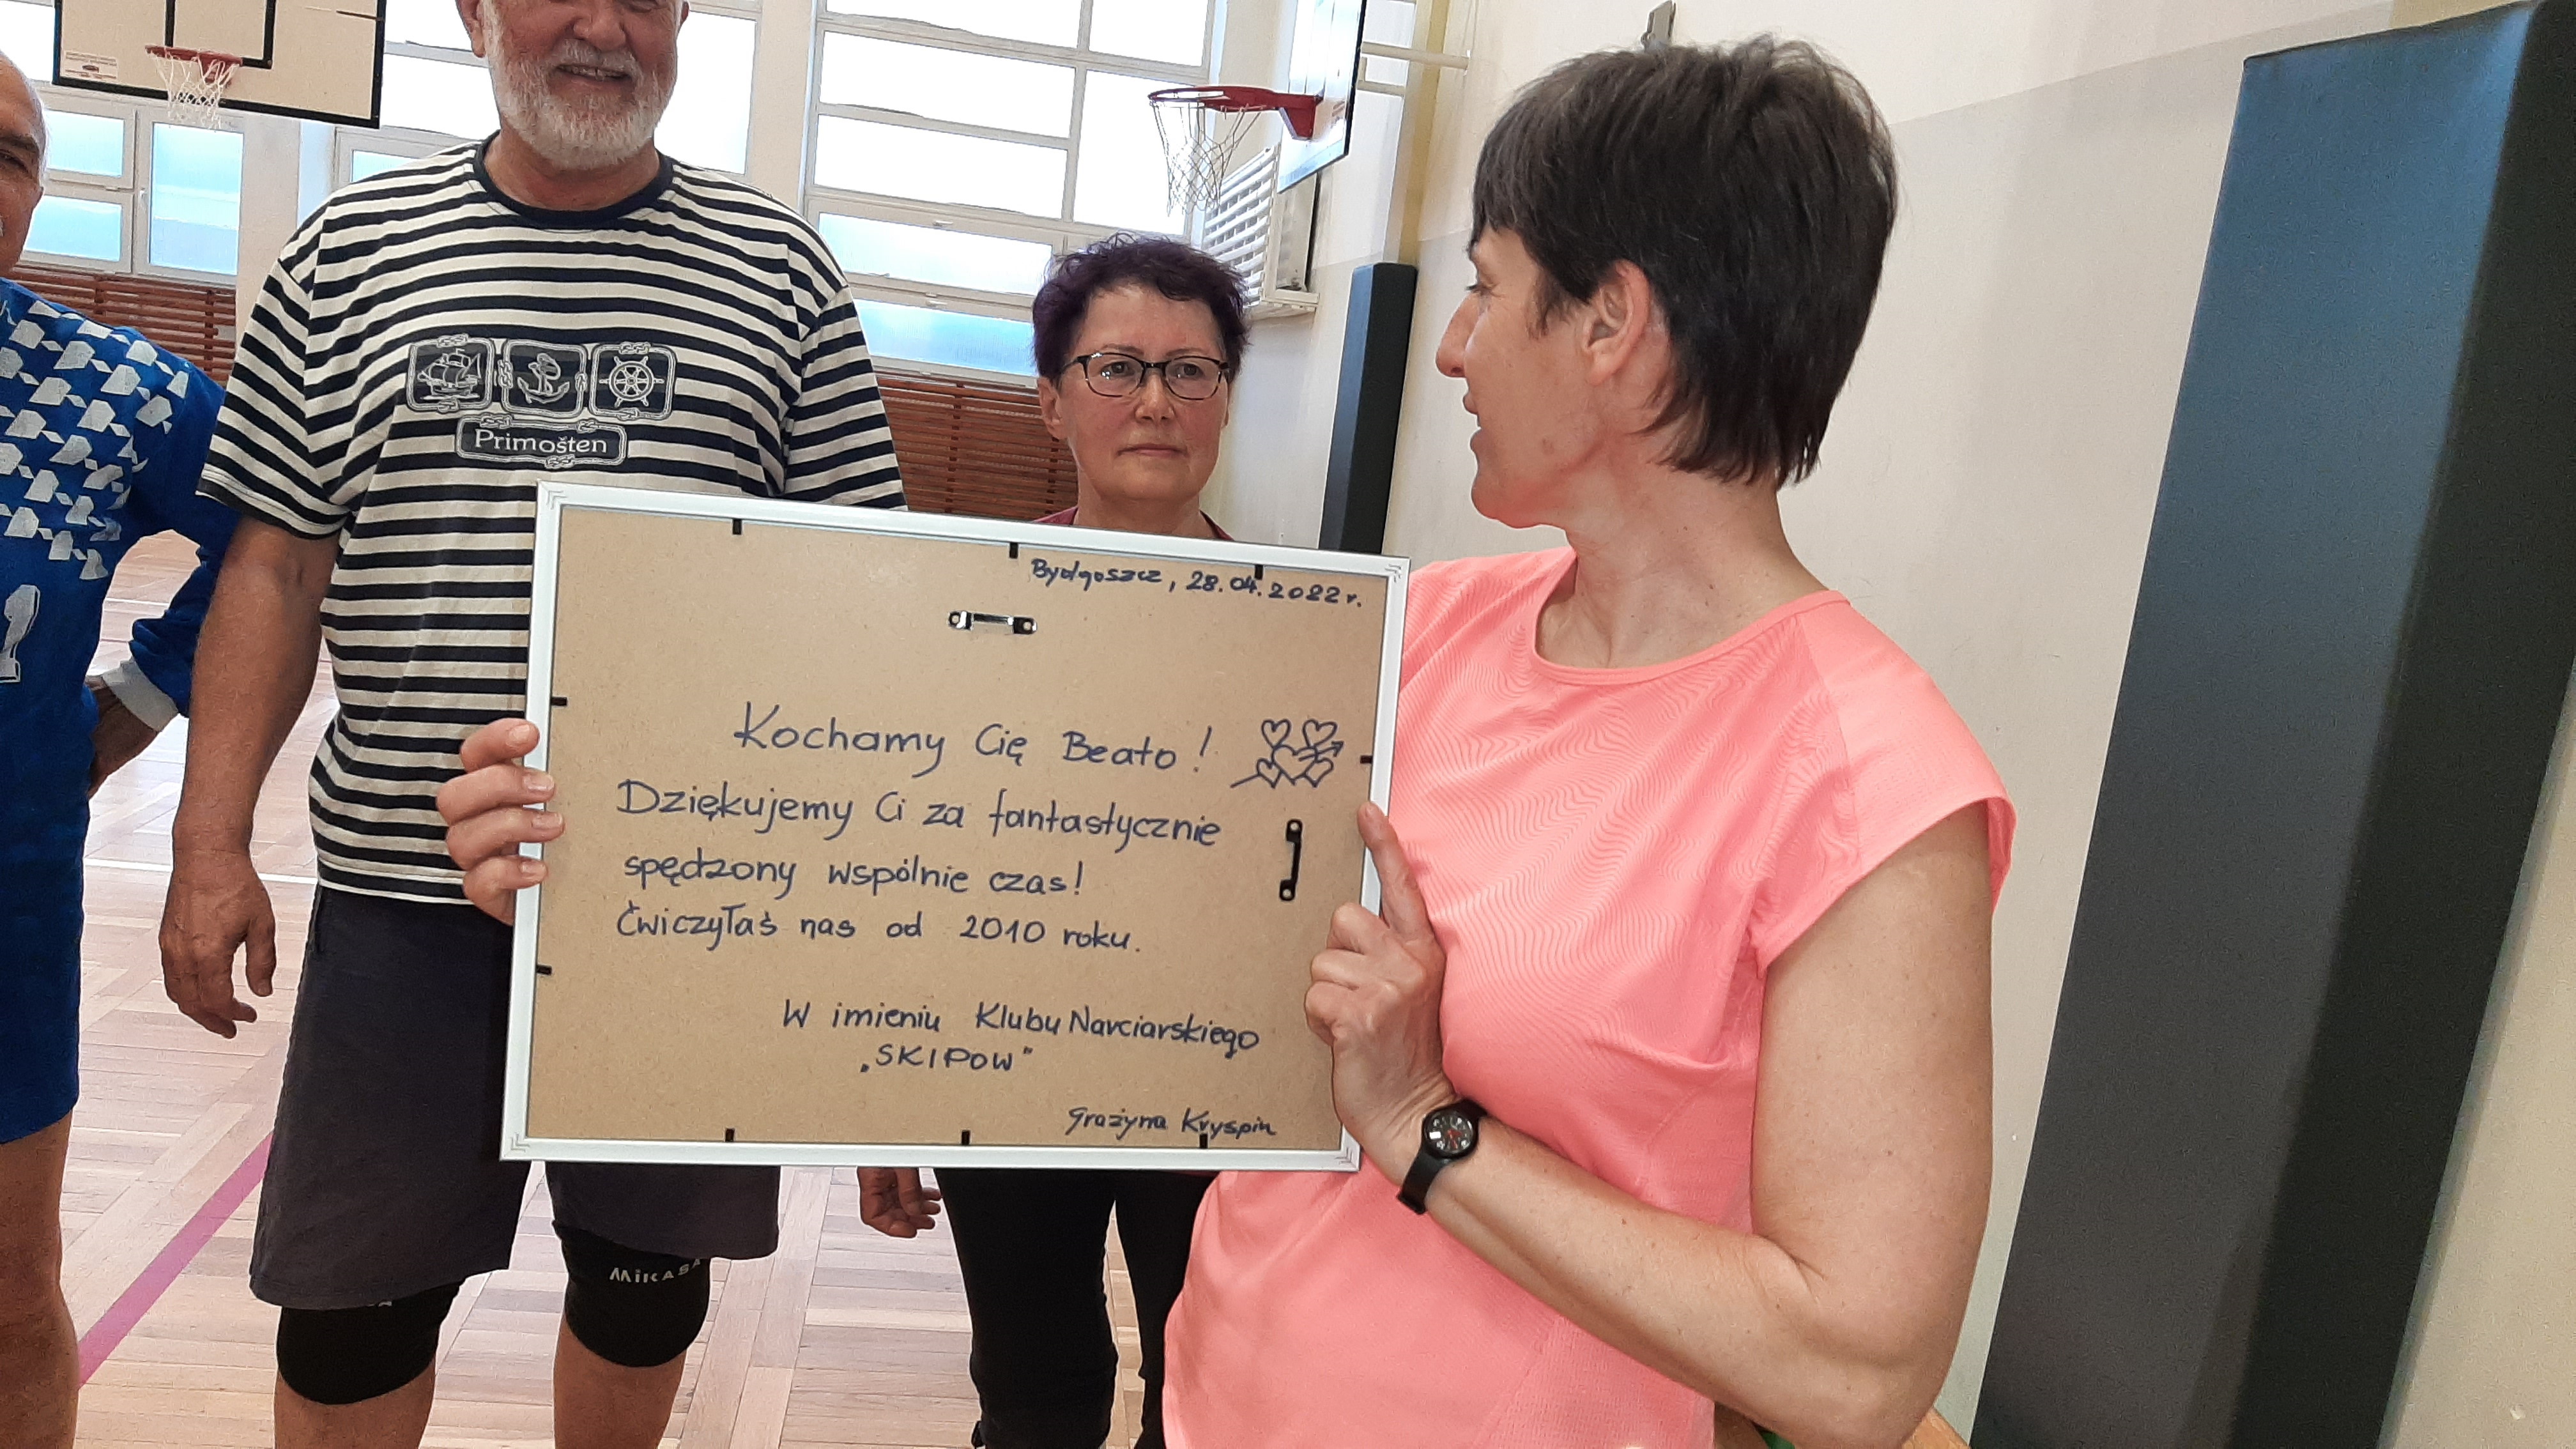 Primošten
Bydgoszcz, 28.04.2022 r.
Kochamy Cię Beato!
Dziękujemy Ci za fantastycznie
spędzony wspólnie czas!
Ćwiczyłaś nas od 2010 roku.
W imieniu Klubu Narciarskiego
„SKIPOW"
Grażyna Kryspin
MIKASA